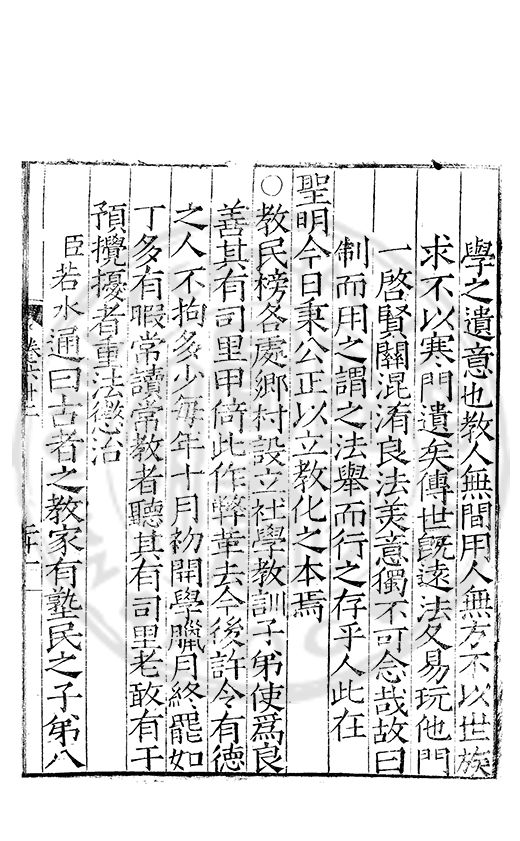 學之遺意也教人無間用人無方不以世族
求不以寒門遺矣傳世既遠法久易玩他門
一啓賢關混淆良法美意獨不可念哉故曰
制而用之謂之法舉而行之存乎人此在
聖明今日秉公正以立教化之本焉
○教民榜各處鄉村設立社學教訓子弟使爲良
善其有司里甲倚此作弊革去今後許令有德
之人不拘多少每年十月初開學臘月終罷如
丁多有暇常讀常教者聽其有司里老敢有干
預攪擾者重法懲治
臣若水通曰古者之教家有塾民之子弟八